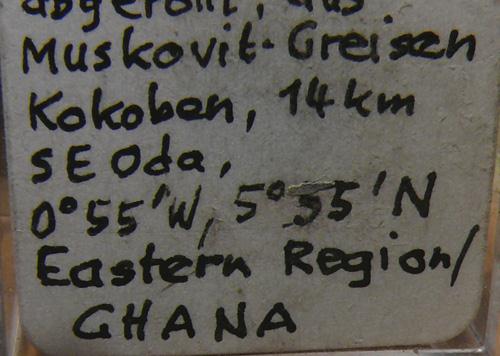 abgerollt, aus
Muskovit-Greisen
Kokoben, 14 km
SE Oda,
0°55'W, 5°55'N
Eastern Region/
GHANA